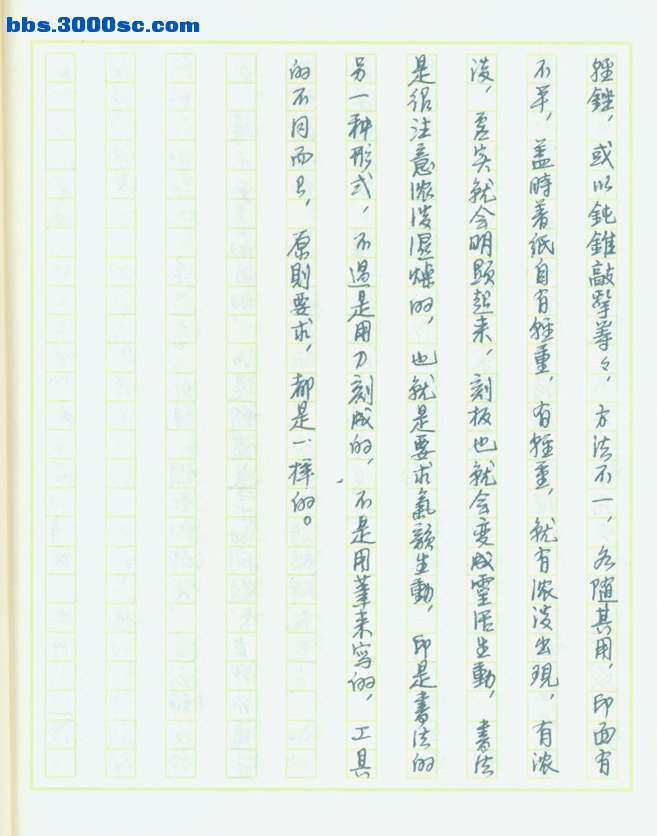 bbs.3000sc.com
輕銼，或以鈍錐敲擊等々，方法不一，各隨其用，印面有
不平，蓋時著紙自有輕重，有輕重，就有濃淡出現，有濃
淡，虛实就会明顯起来，刻板也就会变成靈活生動，書法
是很注意濃淡濕燥的，也就是要求氣韻生動，印是書法的
另一种形式，不過是用刀刻成的，不是用筆来写的，工具
的不同而已，原則要求，都是一样的。